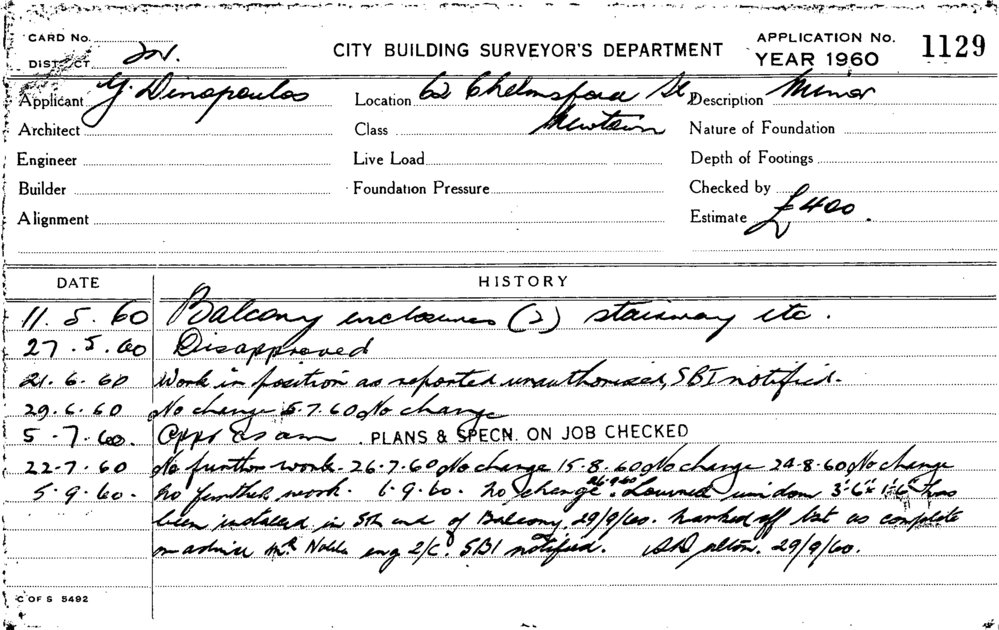 CARD No.
DISTRICT
CITY BUILDING SURVEYOR'S DEPARTMENT
APPLICATION No.
YEAR 1960
1129
Applicant Y. Dinapoulos
Location 62 Chelmsford St
Newtown
Description Minor
Architect
Class
Nature of Foundation
Engineer
Live Load
Depth of Footings
Builder
Foundation Pressure
Checked by
Alignment
Estimate £400.
DATE HISTORY
11.5.60 Balcony enclosures (2) stairway etc.
27.5.60 Disapproved
21.6.60 Work in position as reported unauthorised, SBI notified.
29.6.60 No change 5.7.60 No change
5.7.60. PLANS & SPECN. ON JOB CHECKED
22.7.60 No further work. 26.7.60 No change 15.8.60 No change 24.8.60 No change
5.9.60. No further work. 6.9.60. No change. 26.9.60 Louvred window 3'-6" x 1'-6" has
been installed in Sth end of Balcony. 29/9/60. Marked off list as complete
on advice Mr eng 2/c. SBI notified. 29/9/60.
C OF S 5492